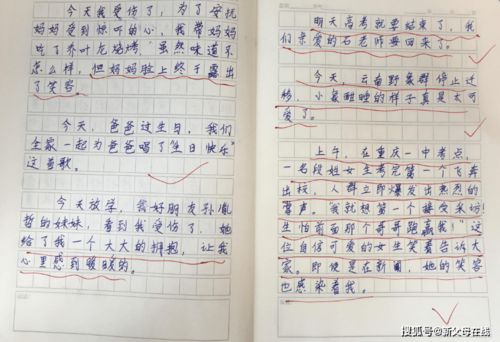 今天我受伤了，为了安抚
妈妈受到惊吓的心，我带妈妈
吃了乔叶屯烧烤，虽然味道不
怎么样，但妈妈脸上终于露出
了笑容。
今天，爸爸过生日，我们
全家一起为爸爸唱了“生日快乐”
这首歌。
今天放学，我好朋友孙胤
哲的妹妹，看到我受伤了，她
给了我一个大大的拥抱，让我
心里感到暖暖的。
明天高考就要结束了，我
们亲爱的石老师要回来了。
今天，云南野象群停止迁
移，小象酣睡的样子真是太可
爱了。
上午，在重庆一中考点，
一名段姓女生考完第一个飞奔
出校，人群立即爆发出热烈的
掌声。“我就想第一个接受采访！
生怕前面那个哥哥跑赢我！”这
位自信可爱的女生笑着告诉大
家。即使是在新闻，她的笑容
也感染着我。
搜狐号@新父母在线